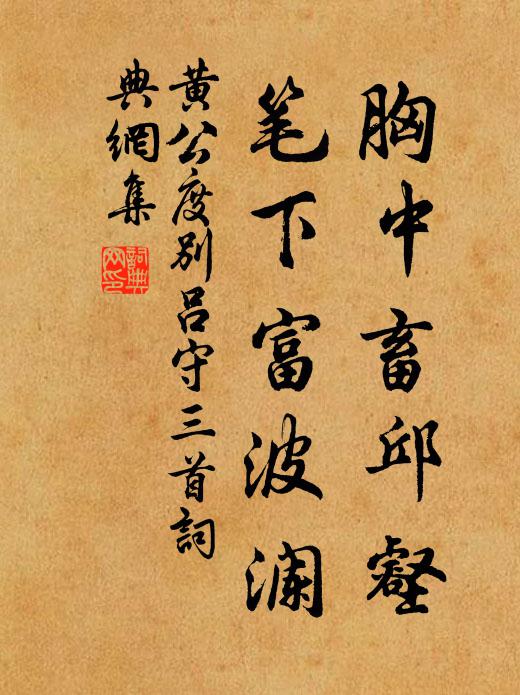 胸中畜邱壑
笔下富波澜
黄公度别吕守三首詞
典網集
詞典网印